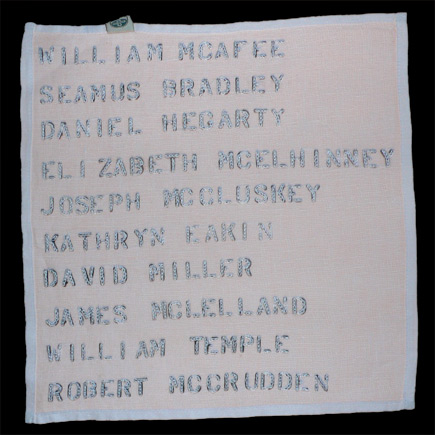 WILLIAM MCAFEE
SEAMUS BRADLEY
DANIEL HEGARTY
ELIZABETH MCELHINNEY
JOSEPH MCCLUSKEY
KATHRYN EAKIN
DAVID MILLER
JAMES MCLELLAND
WILLIAM TEMPLE
ROBERT MCCRUDDEN